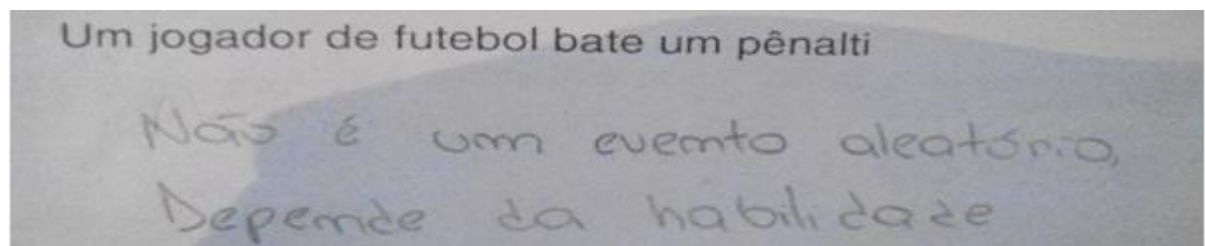 Um jogador de futebol bate um pênalti
Não é um evento aleatório,
Depende da habilidade